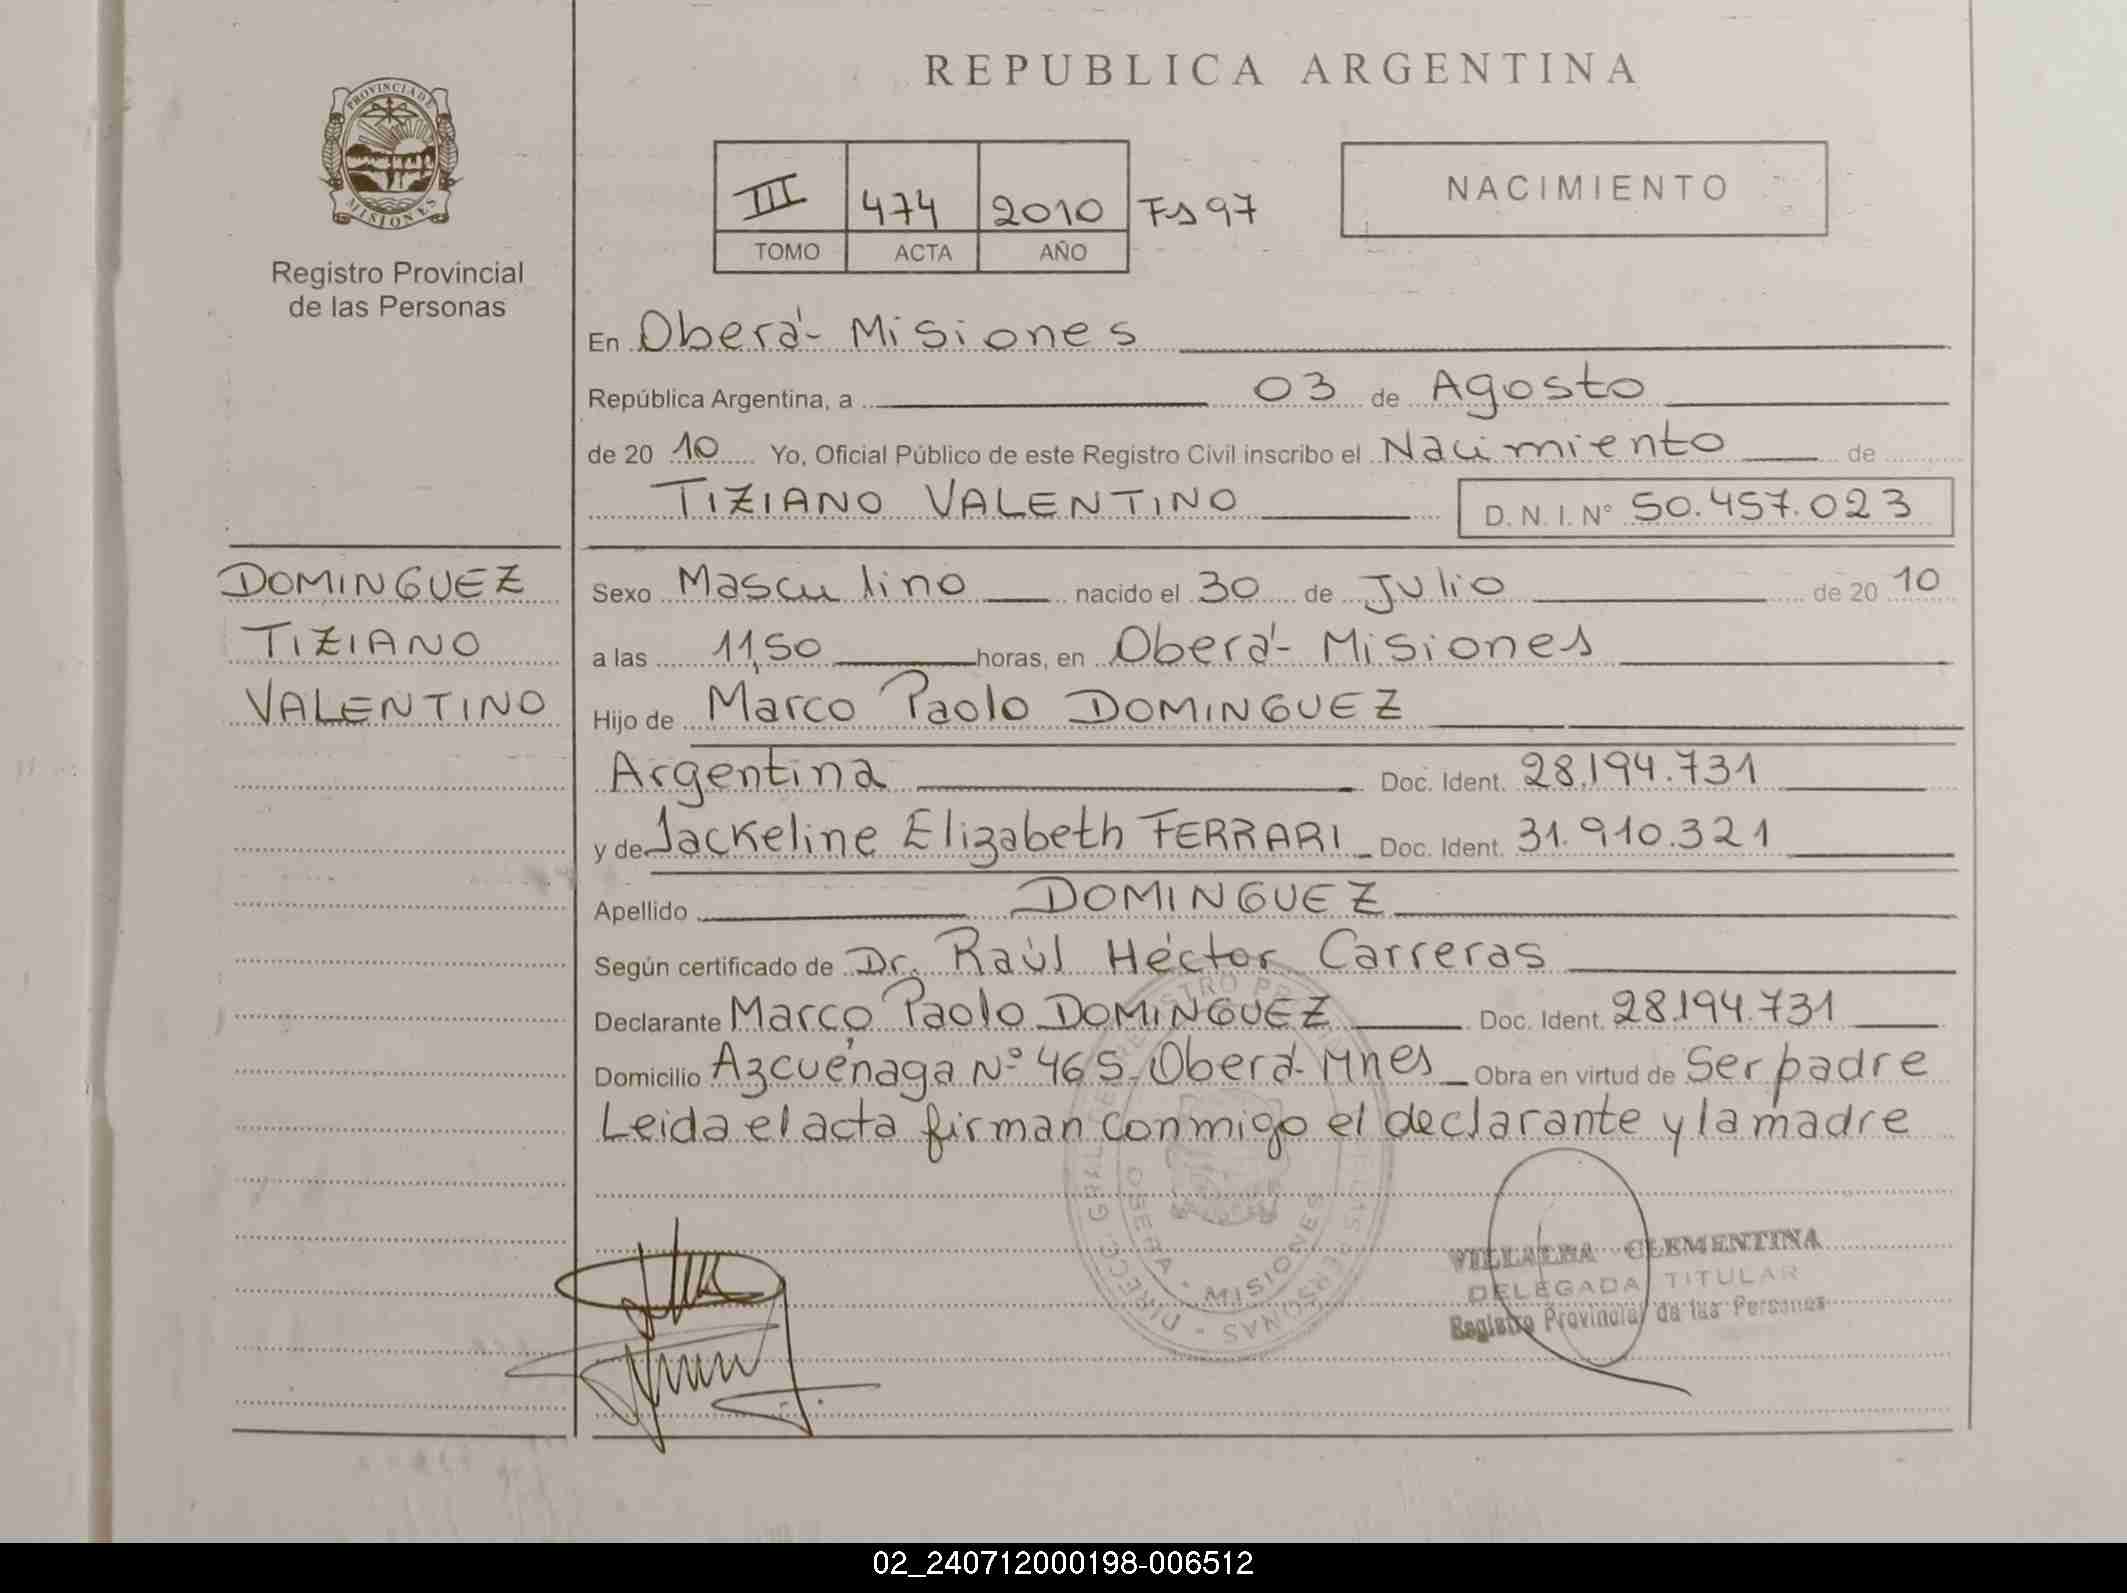 REPUBLICA ARGENTINA
PROVINCIA DE
MISIONES
Registro Provincial
de las Personas
III 474 2010 Fs 97
TOMO ACTA AÑO
NACIMIENTO
En Oberá - Misiones
República Argentina, a 03 de Agosto
de 2010 Yo, Oficial Público de este Registro Civil inscribo el Nacimiento de
TIZIANO VALENTINO D. N. I. Nº 50.457.023
DOMINGUEZ
TIZIANO
VALENTINO
Sexo Masculino nacido el 30 de Julio de 2010
a las 11,50 horas, en Oberá - Misiones
Hijo de Marco Paolo DOMINGUEZ
Argentina Doc. Ident. 28.194.731
y de Jackeline Elizabeth FERRARI Doc. Ident. 31.910.321
Apellido DOMINGUEZ
Según certificado de Dr. Raúl Héctor Carreras
Declarante Marco Paolo DOMINGUEZ Doc. Ident. 28.194.731
Domicilio Azcuénaga Nº 465 - Oberá - Mnes Obra en virtud de Ser padre
Leida el acta firman conmigo el declarante y la madre
OBERA - MISIONES
VILLALBA CLEMENTINA
DELEGADA TITULAR
Registro Provincial de las Personas
02_240712000198-006512